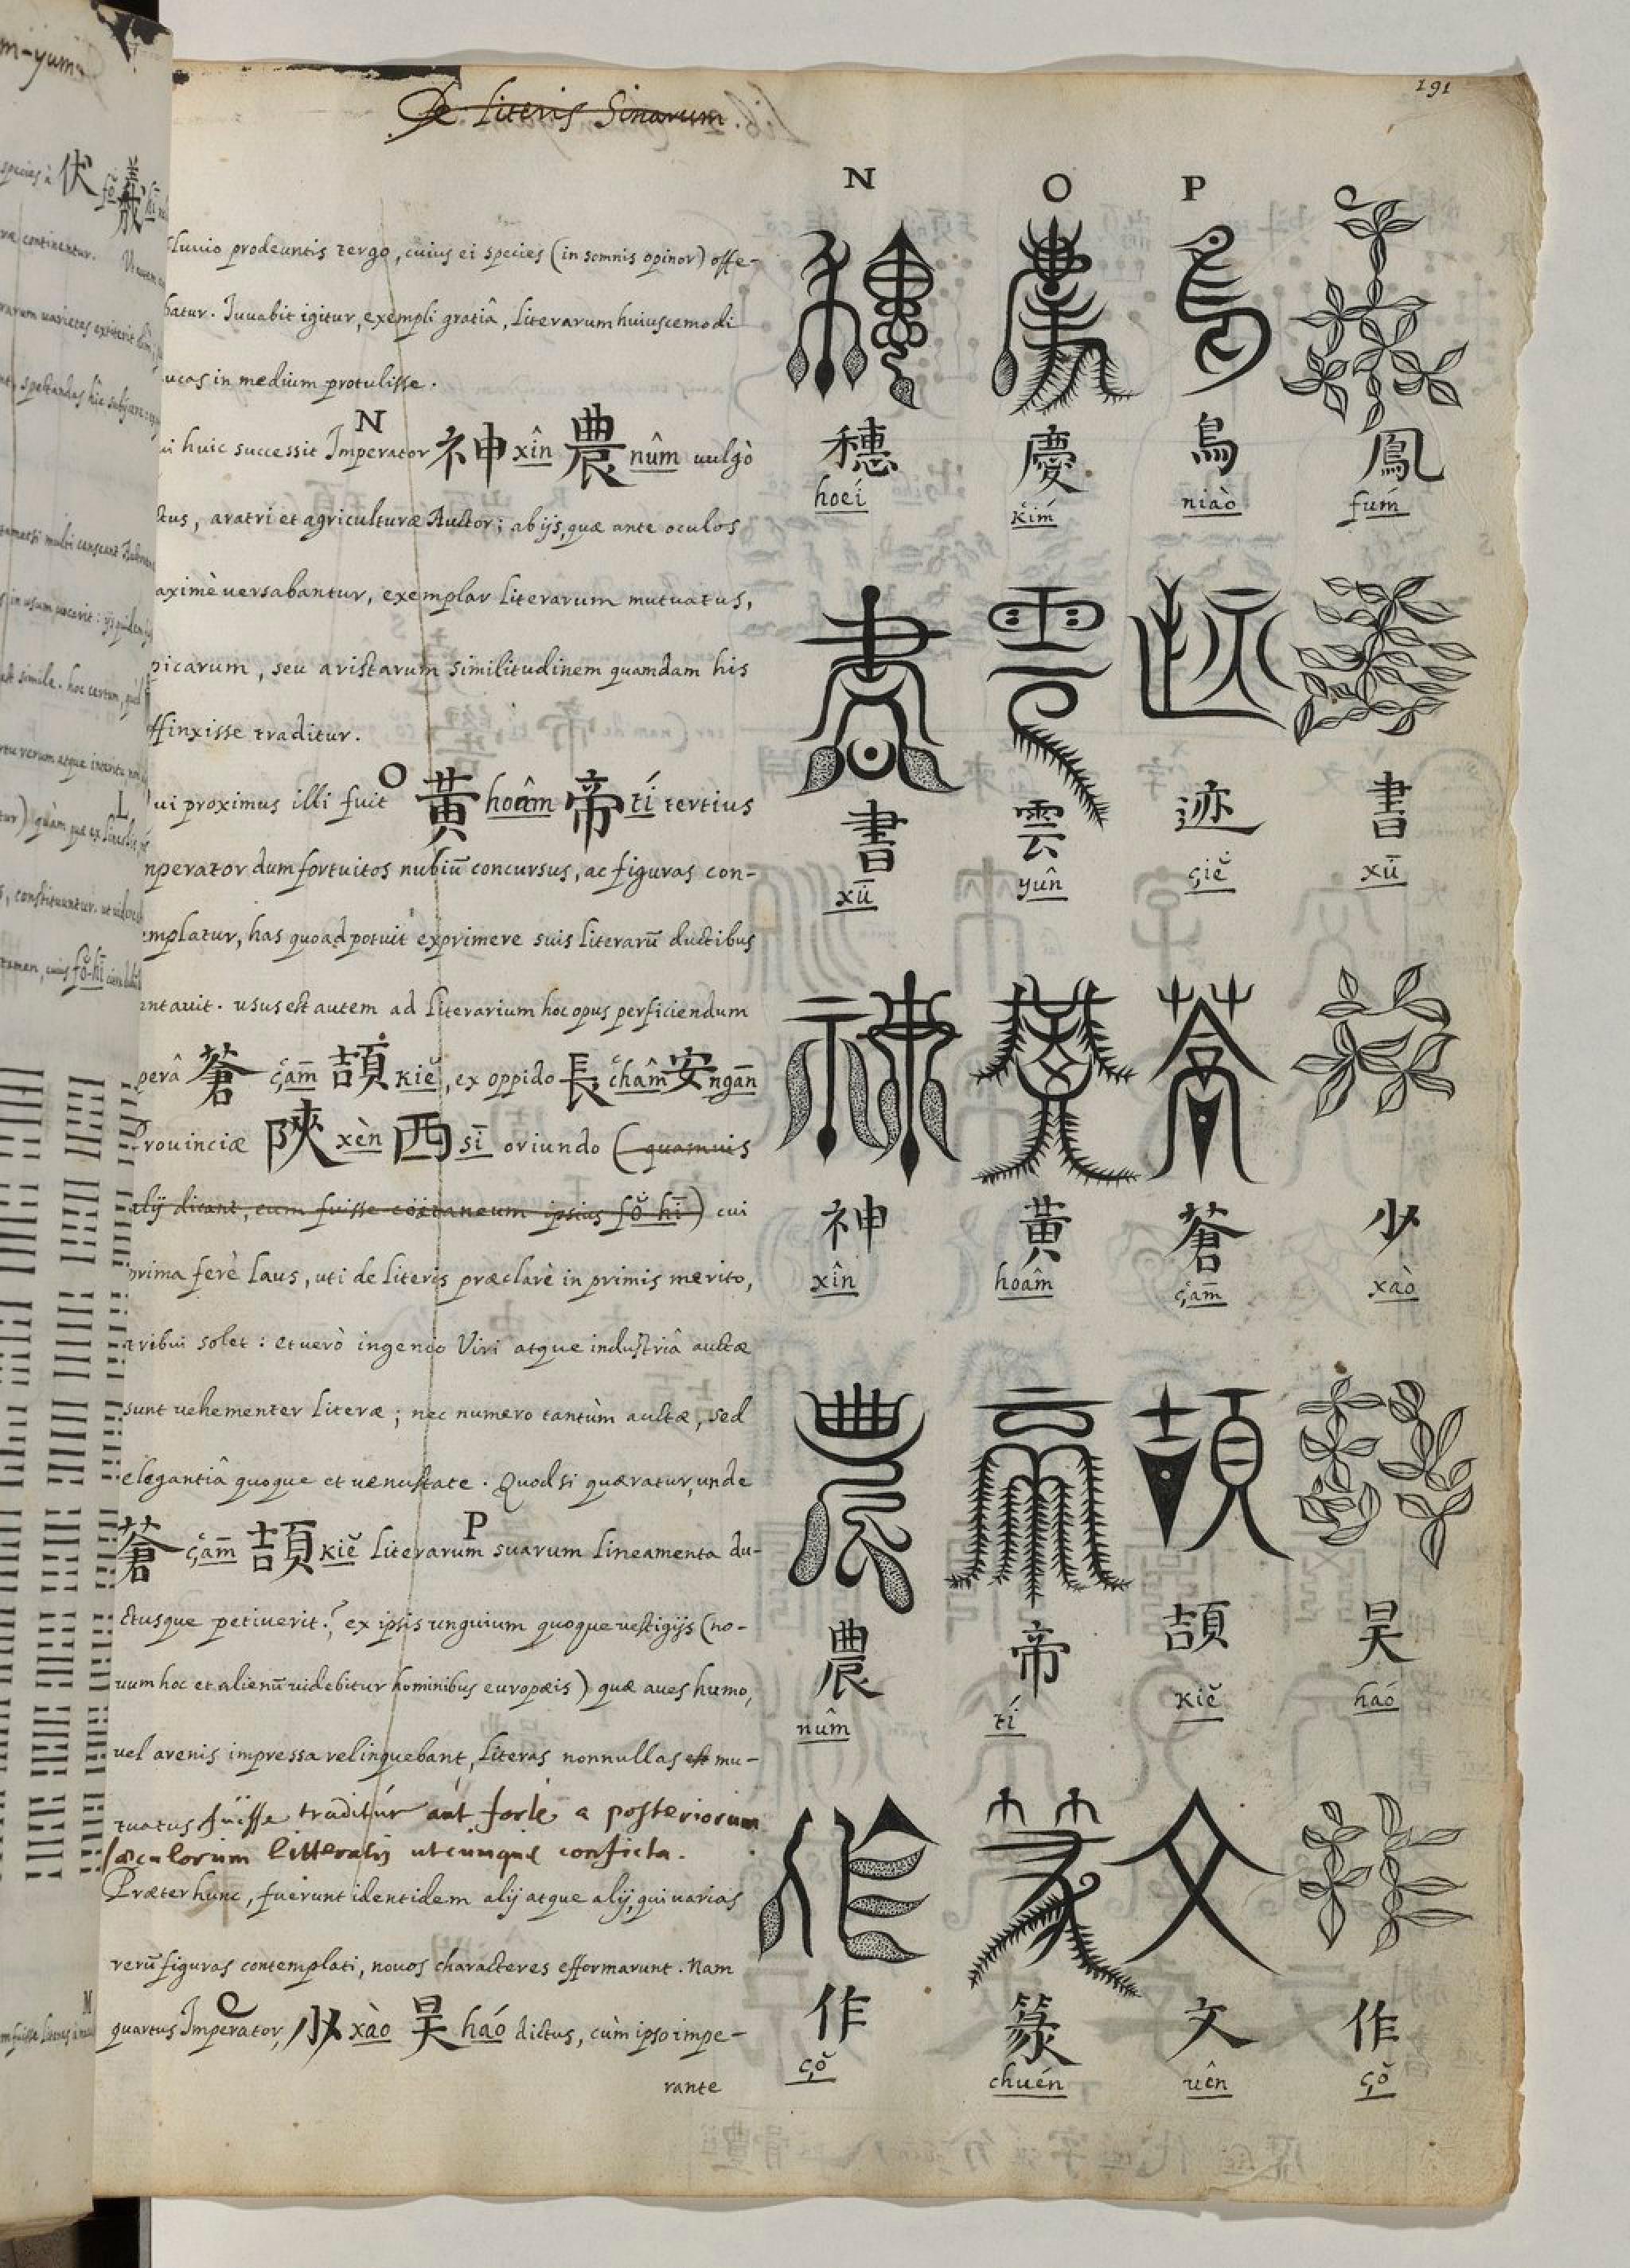 De Literis Sinarum
191
fluvio prodeuntis tergo, cuius ei species (in somnis opinor) offe-
batur. Juvabit igitur, exempli gratiâ, literarum huiuscemodi
ucas in medium protulisse.
N
ui huic successit Imperator 神 xîn 農 nûm vulgò
ctus, aratri et agriculturæ Auctor; ab ijs, quæ ante oculos
aximè versabantur, exemplar literarum mutuatus,
picarum, seu aristarum similitudinem quamdam his
ffinxisse traditur.
O
ui proximus illi fuit 黃 hoâm 帝 tí tertius
mperator dum fortuitos nubiū concursus, ac figuras con-
emplatur, has quoad potuit exprimere suis literarū ductibus
entavit. usus est autem ad literarium hoc opus perficiendum
perâ 蒼 çām 頡 kiĕ, ex oppido 長 châm 安 ngān
Provinciæ 陝 xèn 西 sī oriundo (quamvis
alij dicant, eum fuisse coætaneum ipsius fŏ hī) cui
prima ferè laus, uti de literis præclarè in primis merito,
tribui solet: et verò ingenio Viri atque industriâ auctæ
sunt vehementer literæ; nec numero tantùm auctæ, sed
elegantiâ quoque et venustate. Quod si quæratur, unde
P
蒼 çām 頡 kiĕ literarum suarum lineamenta du-
ctusque petiverit? ex ipsis unguium quoque vestigijs (no-
vum hoc et alienū videbitur hominibus europæis) quæ aves humo,
vel arenis impressa relinquebant, literas nonnullas est mu-
tuatus fuisse traditur aut forte a posteriorum
sæculorum litteratis utcunque conficta.
Præter hunc, fuerunt identidem alij atque alij, qui varias
rerū figuras contemplati, novos characteres efformarunt. Nam
Q
quartus Imperator, 少 xào 昊 háo dictus, cùm ipso impe-
rante
N O P Q
穗 慶 鳥 鳳
hoeí kím niào fúm
書 雲 迹 書
xū yûn çiĕ xū
神 黃 蒼 少
xîn hoâm çām xào
農 帝 頡 昊
nûm tí kiĕ háo
作 篆 文 作
çŏ chuén vên çŏ